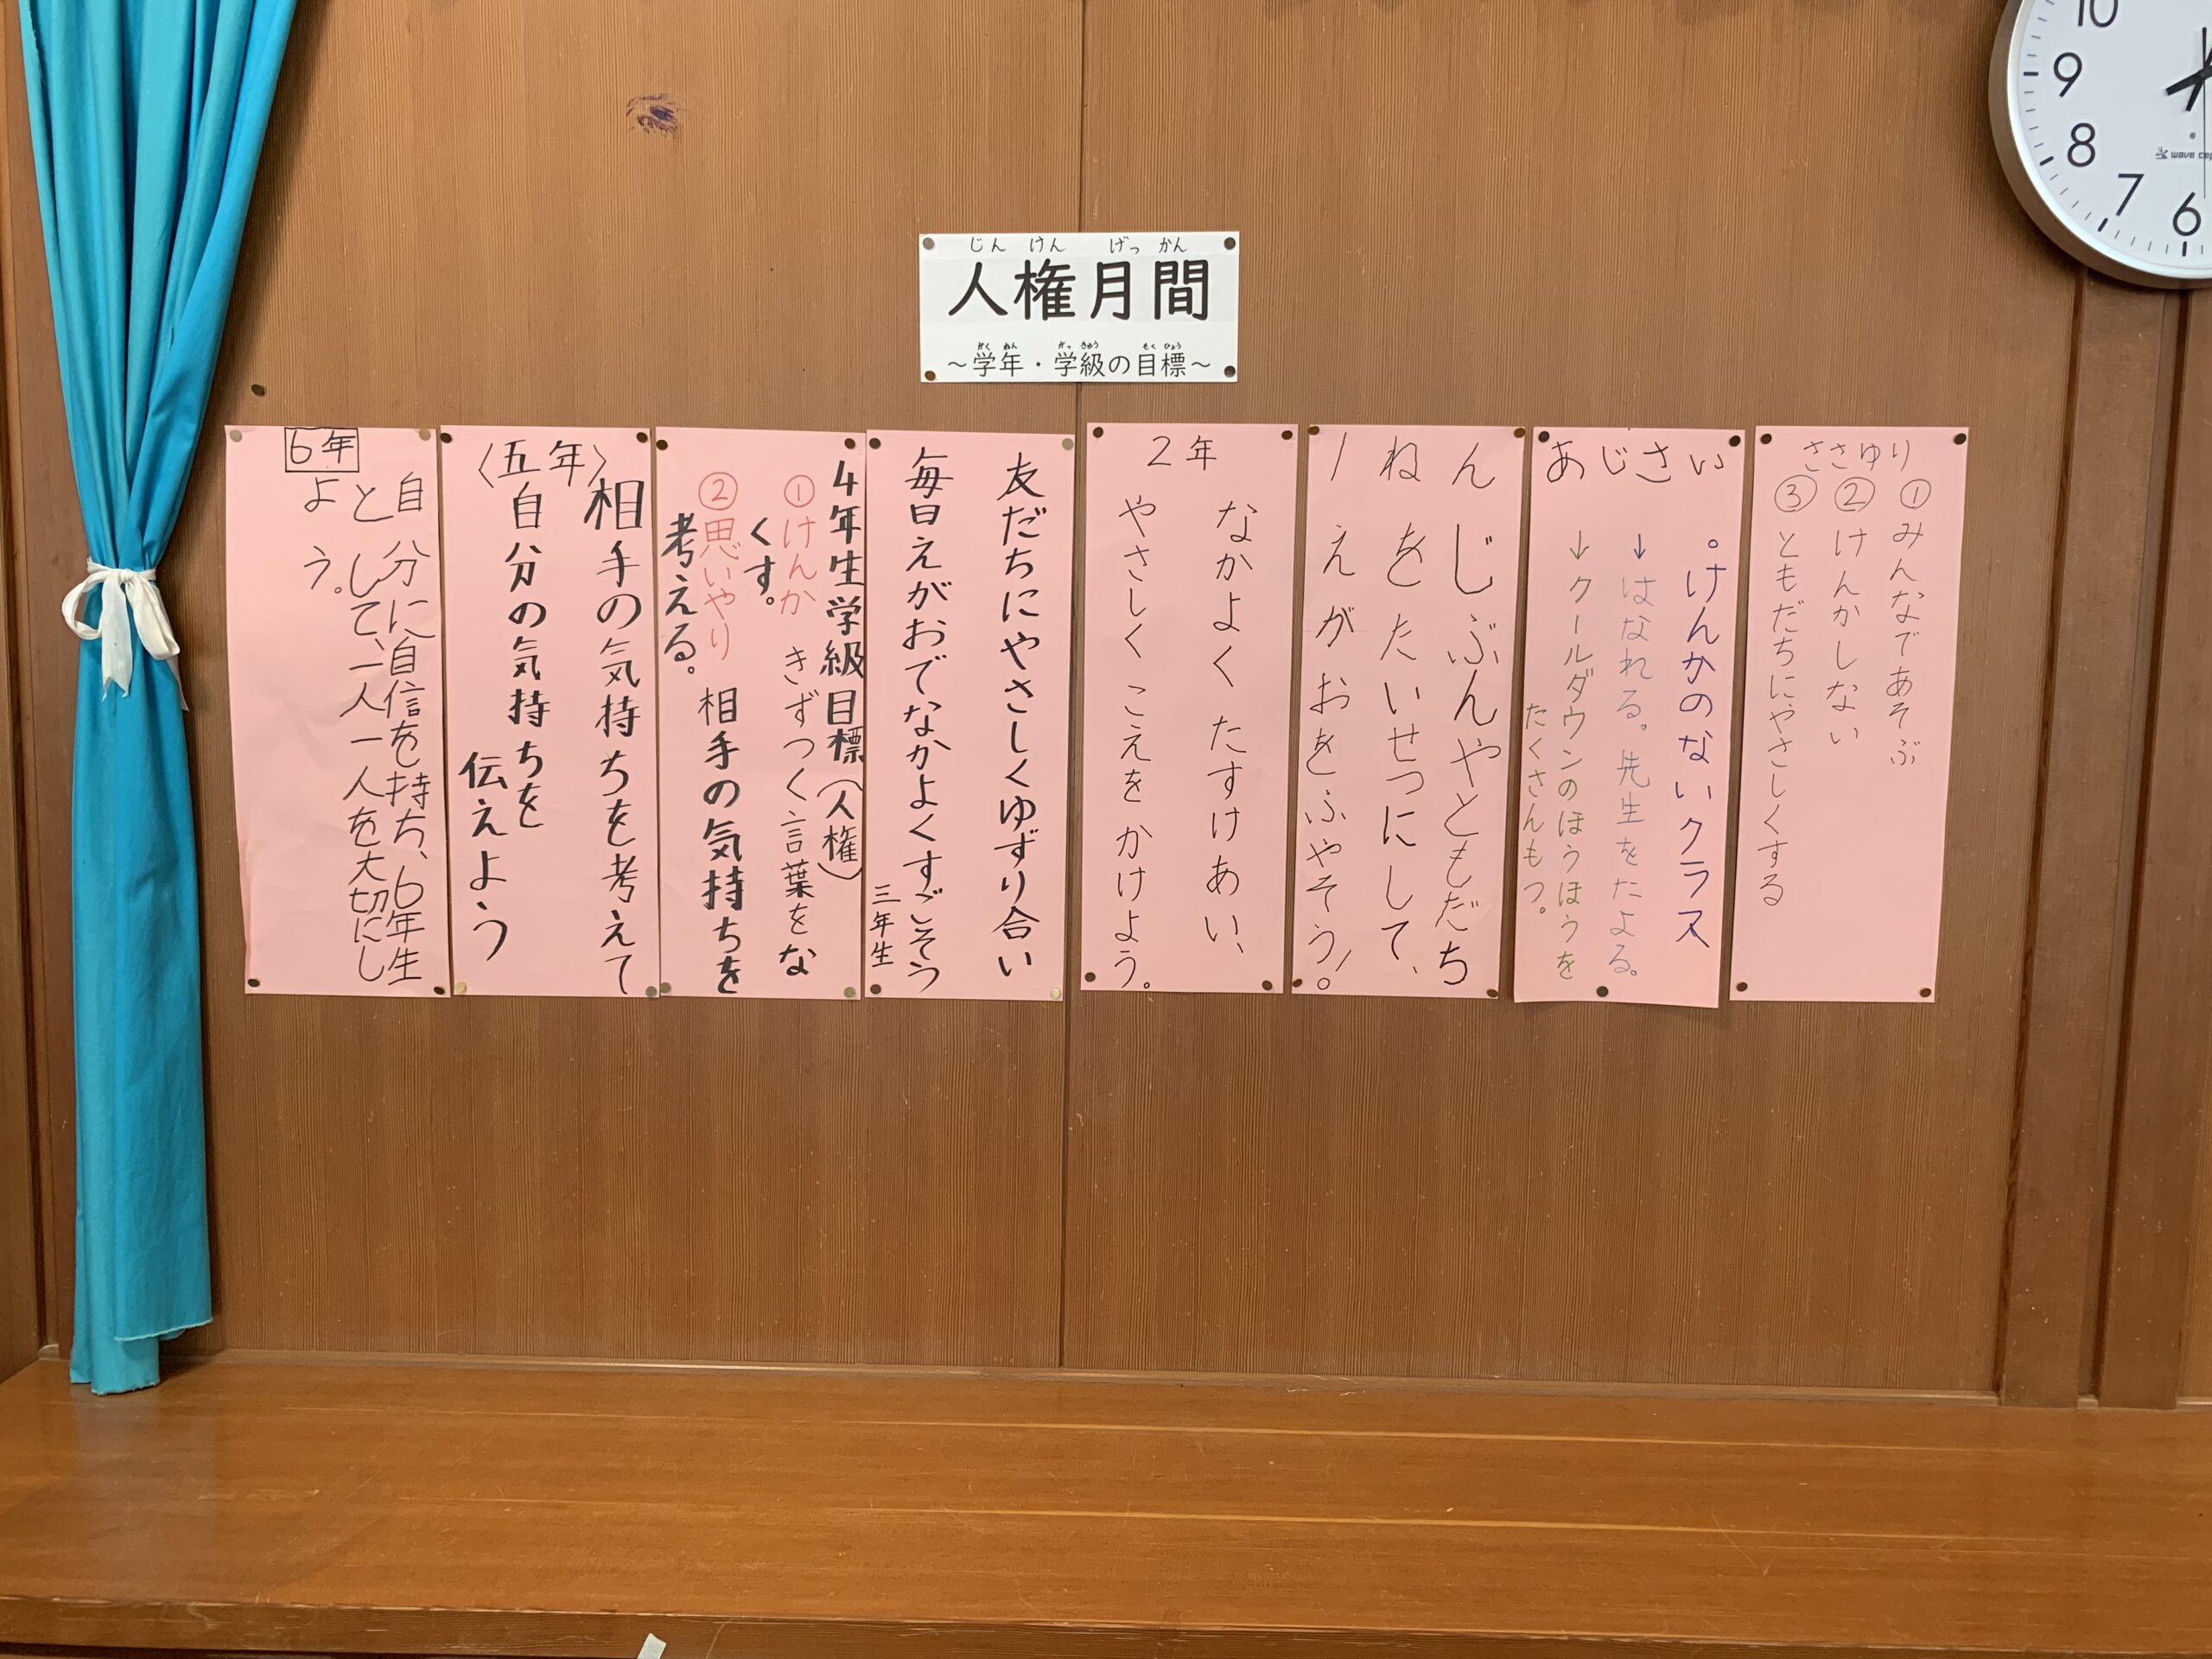 じんけんげっかん
人権月間
がくねん がっきゅう もくひょう
～学年・学級の目標～
ささゆり
①みんなであそぶ
②けんかしない
③ともだちにやさしくする
あじさい
。けんかのないクラス
↓はなれる。先生をたよる。
↓クールダウンのほうほうを
たくさんもつ。
1ねん
じぶんやともだち
をたいせつにして、
えがおをふやそう！。
2年
なかよく たすけあい、
やさしく こえを かけよう。
友だちにやさしくゆずり合い
毎日えがおでなかよくすごそう
三年生
4年生学級目標（人権）
①けんか きずつく言葉をな
くす。
②思いやり 相手の気持ちを
考える。
〈五年〉
相手の気持ちを考えて
自分の気持ちを
伝えよう
6年
自分に自信を持ち、6年生
として、一人一人を大切にし
よう。
10
9
8
7
6
wave cep